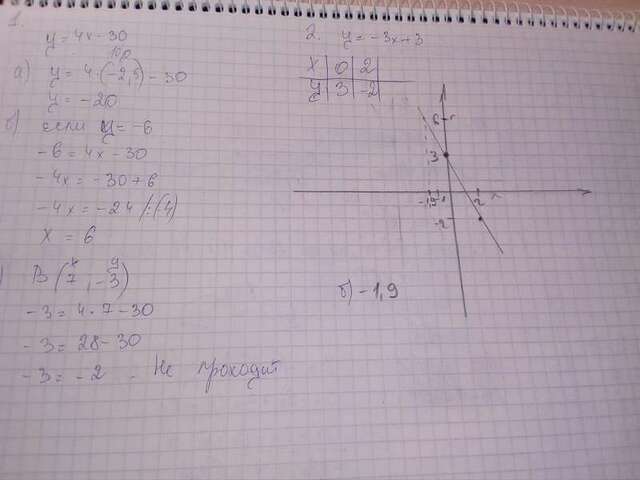 1.
y = 4x - 30
а) y = 4 · (-2,5) - 30
y = -20
б) если y = -6
-6 = 4x - 30
-4x = -30 + 6
-4x = -24 /:(-4)
x = 6
) B (7, -3)
x y
-3 = 4 · 7 - 30
-3 = 28 - 30
-3 = -2 . Не проходит
2. y = -3x + 3
x | 0 | 2
y | 3 | -2
6
3
2
-2
б) -1,9